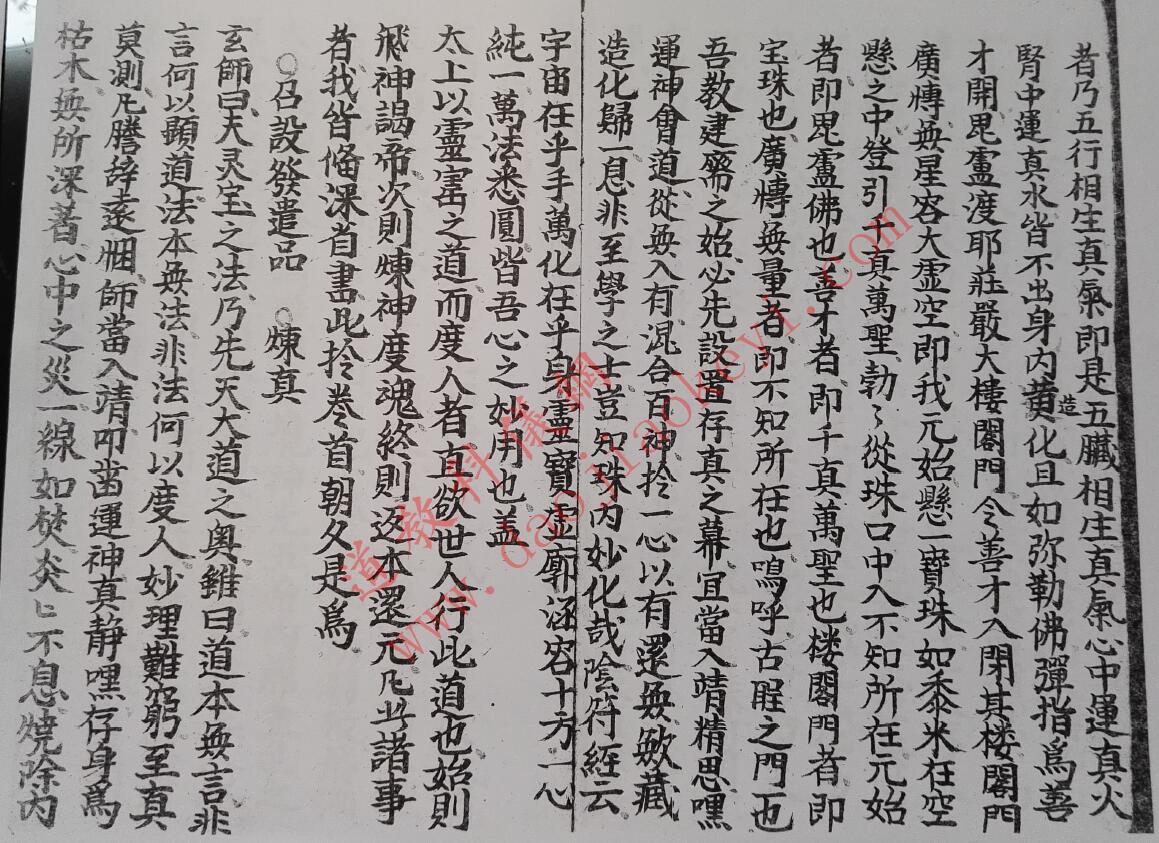 者乃五行相生真氣即是五臟相生真氣心中運真火
腎中運真水皆不出身内黄造化且如弥勒佛彈指爲善
才開毘盧渡耶莊嚴大樓閣門令善才入閉其楼閣門
廣愽無星容大虛空即我元始懸一寶珠如黍米在空
懸之中登引千真萬聖勃〻從珠口中入不知所在元始
者即毘盧佛也善才者即千真萬聖也楼閣門者即
宝珠也廣愽無量者即不知所在也鳴呼古聖之門也
吾教建齋之始必先設置存真之幕宜當入靖精思嘿
運神會道從無入有混合百神扵一心以有還無斂藏
造化歸一息非至學之士豈知珠内妙化哉陰符経云
宇宙在乎手萬化在乎身靈寶虛廓涵容十方一心
純一萬法悉圓皆吾心之妙用也盖
太上以靈寶之道而度人者直欲世人行此道也始則
飛神謁帝次則煉神度魂終則返本還元凡此諸事
者我皆俻深省書此扵卷首朝夕是爲
○召設發遣品 ○煉真
玄師曰夫灵宝之法乃先天大道之奥雖曰道本無言非
言何以顕道法本無法非法何以度人妙理難窮至真
莫測凡謄辞遠悃師當入靖叩齒運神真静嘿存身爲
枯木無所深著心中之災一線如焚炎〻不息焼除内
道教科儀網
www.daojiaokeyi.com